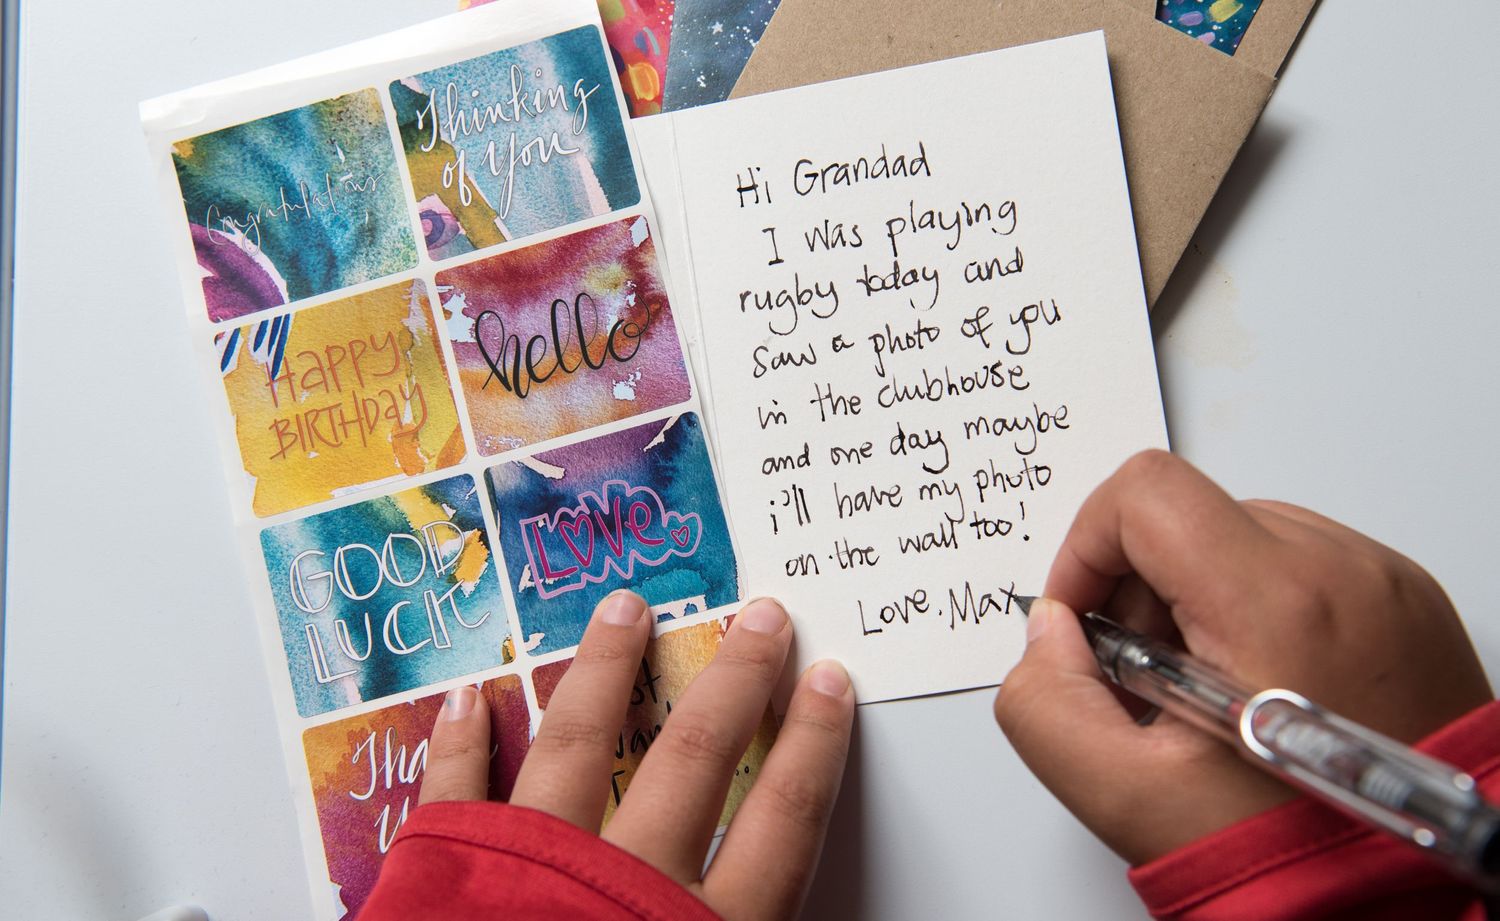 Congratulations
Thinking
of you
HAPPY
BIRTHDAY
hello
GOOD
LUCK
Love
Hi Grandad
I was playing
rugby today and
saw a photo of you
in the clubhouse
and one day maybe
i'll have my photo
on the wall too!
Love, Max